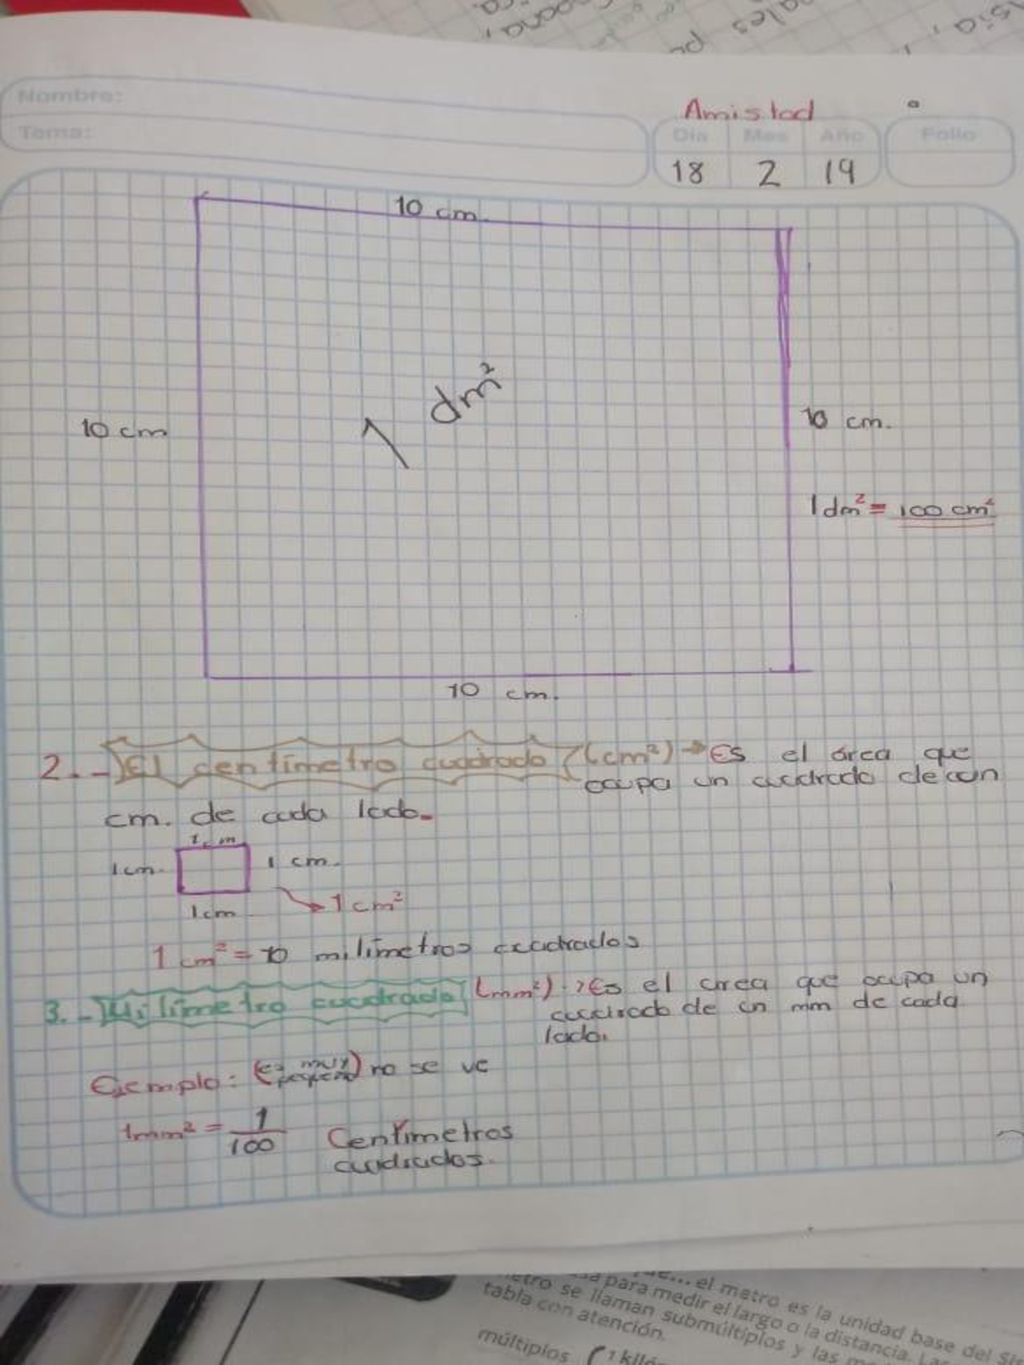 Nombre:
Tema:
Amistad
Día Mes Año Folio
18 2 19
10 cm.
1 dm²
10 cm
10 cm.
1dm² = 100 cm²
10 cm.
2.- El centímetro cuadrado (cm²) → Es el área que
ocupa un cuadrado de un
cm. de cada lado.
1cm
1cm. 1 cm.
1cm → 1 cm²
1 cm² = 10 milímetros cuadrados
3.- Milímetro cuadrado (mm²) → Es el area que ocupa un
cuadrado de un mm de cada
lado.
Ejemplo: (es muy pequeño) no se ve
1mm² = 1/100 Centímetros
cuadrados.
... el metro es la unidad base del
para medir el largo o la distancia.
se llaman submúltiplos y las
tabla con atención.
múltiplos